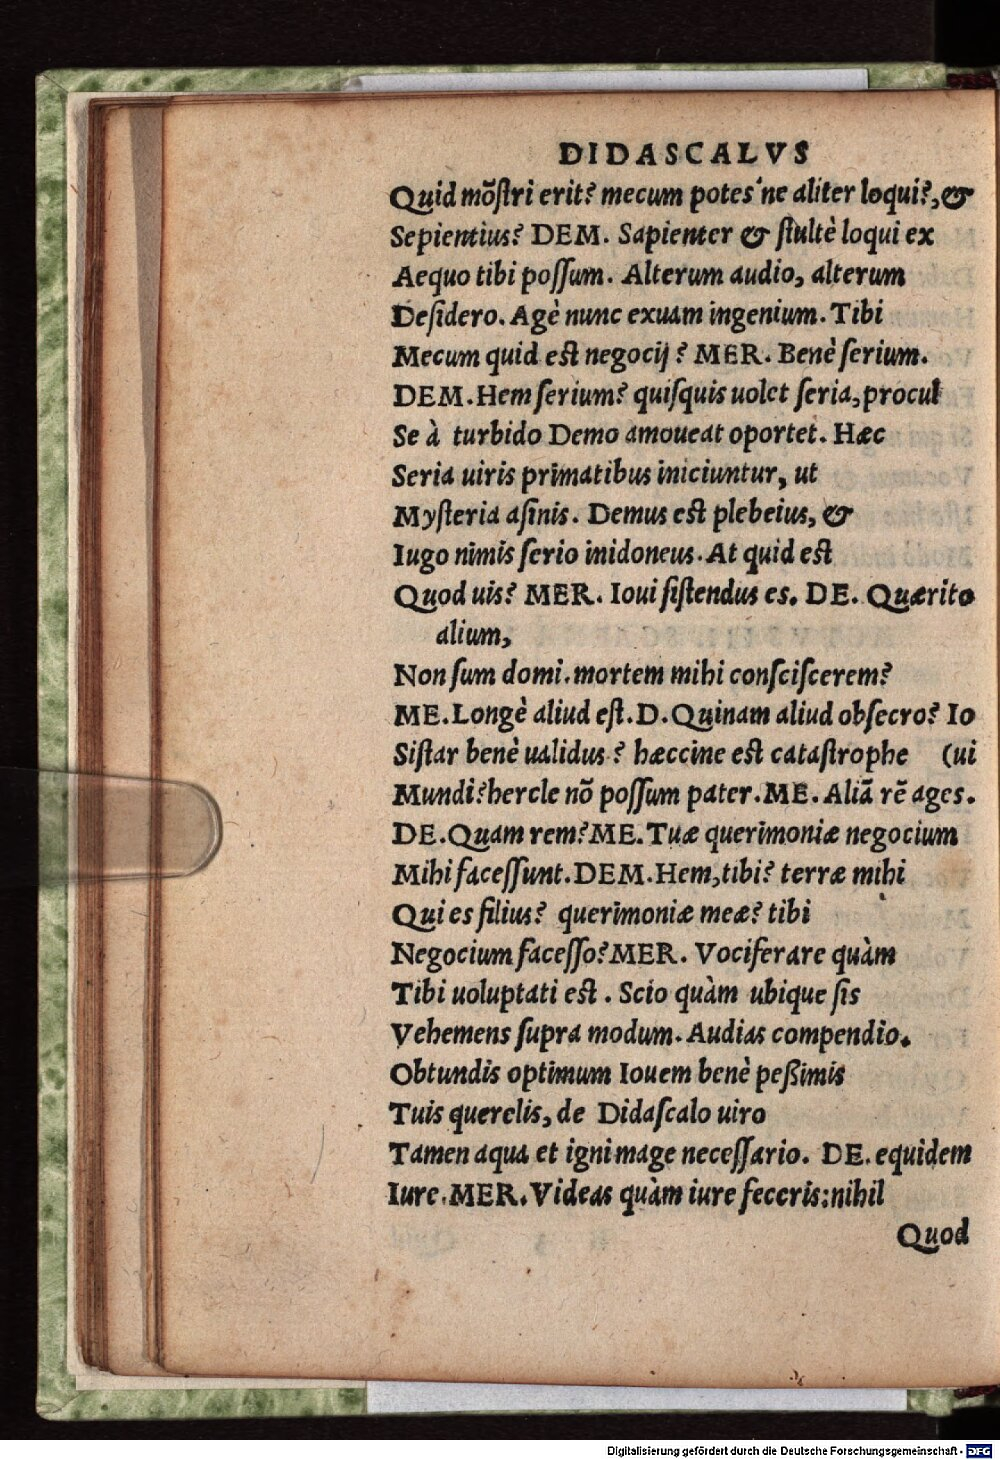 DIDASCALVS
Quid mõſtri erit? mecum potes'ne aliter loqui?, &
Sepientius? DEM. Sapienter & ſtultè loqui ex
Aequo tibi poſſum. Alterum audio, alterum
Deſidero. Agè nunc exuam ingenium. Tibi
Mecum quid eſt negocij? MER. Benè ſerium.
DEM. Hem ſerium? quiſquis uolet ſeria, procul
Se à turbido Demo amoueat oportet. Hæc
Seria uiris primatibus iniciuntur, ut
Myſteria aſinis. Demus eſt plebeius, &
Iugo nimis ſerio inidoneus. At quid eſt
Quod uis? MER. Ioui ſiſtendus es. DE. Quærito
alium,
Non ſum domi. mortem mihi conſciſcerem?
ME. Longè aliud eſt. D. Quinam aliud obſecro? Io
Siſtar benè ualidus? hæccine eſt cataſtrophe (ui
Mundi? hercle nõ poſſum pater. ME. Aliã rẽ ages.
DE. Quam rem? ME. Tuæ querimoniæ negocium
Mihi faceſſunt. DEM. Hem, tibi? terræ mihi
Qui es filius? querimoniæ meæ? tibi
Negocium faceſſo? MER. Vociferare quàm
Tibi uoluptati eſt. Scio quàm ubique ſis
Vehemens ſupra modum. Audias compendio.
Obtundis optimum Iouem benè peßimis
Tuis querelis, de Didaſcalo uiro
Tamen aqua et igni mage neceſſario. DE. equidem
Iure. MER. Videas quàm iure feceris: nihil
Quod
Digitalisierung gefördert durch die Deutsche Forschungsgemeinschaft - DFG